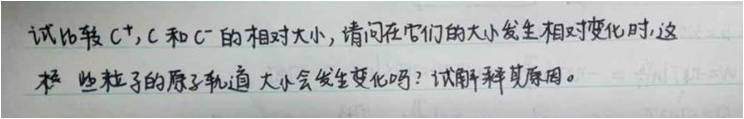 试比较 C⁺, C 和 C⁻ 的相对大小,请问在它们的大小发生相对变化时,这
些粒子的原子轨道大小会发生变化吗?试解释其原因。